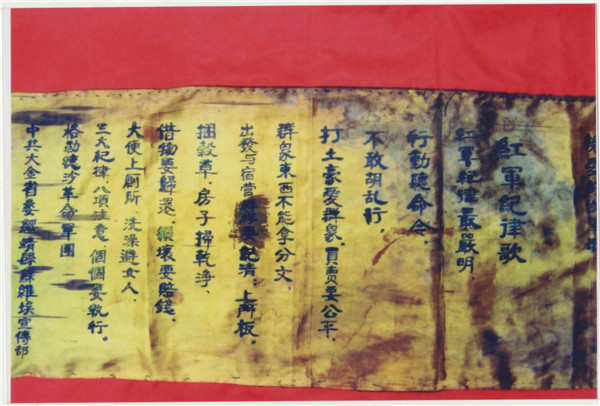 紅軍紀律歌
紅軍紀律最嚴明，
行動聽命令，
不敢胡乱行，
打土豪愛群衆，買賣要公平，
群衆東西不能拿分文，
出發与宿營要記清，上門板，
捆穀草，房子掃乾净，
借物要歸還，損壞要賠錢，
大便上厠所，洗澡避女人，
三大紀律八項注意，個個要執行。
格勒德沙革命軍團
中共大金省委綏靖宣傳部